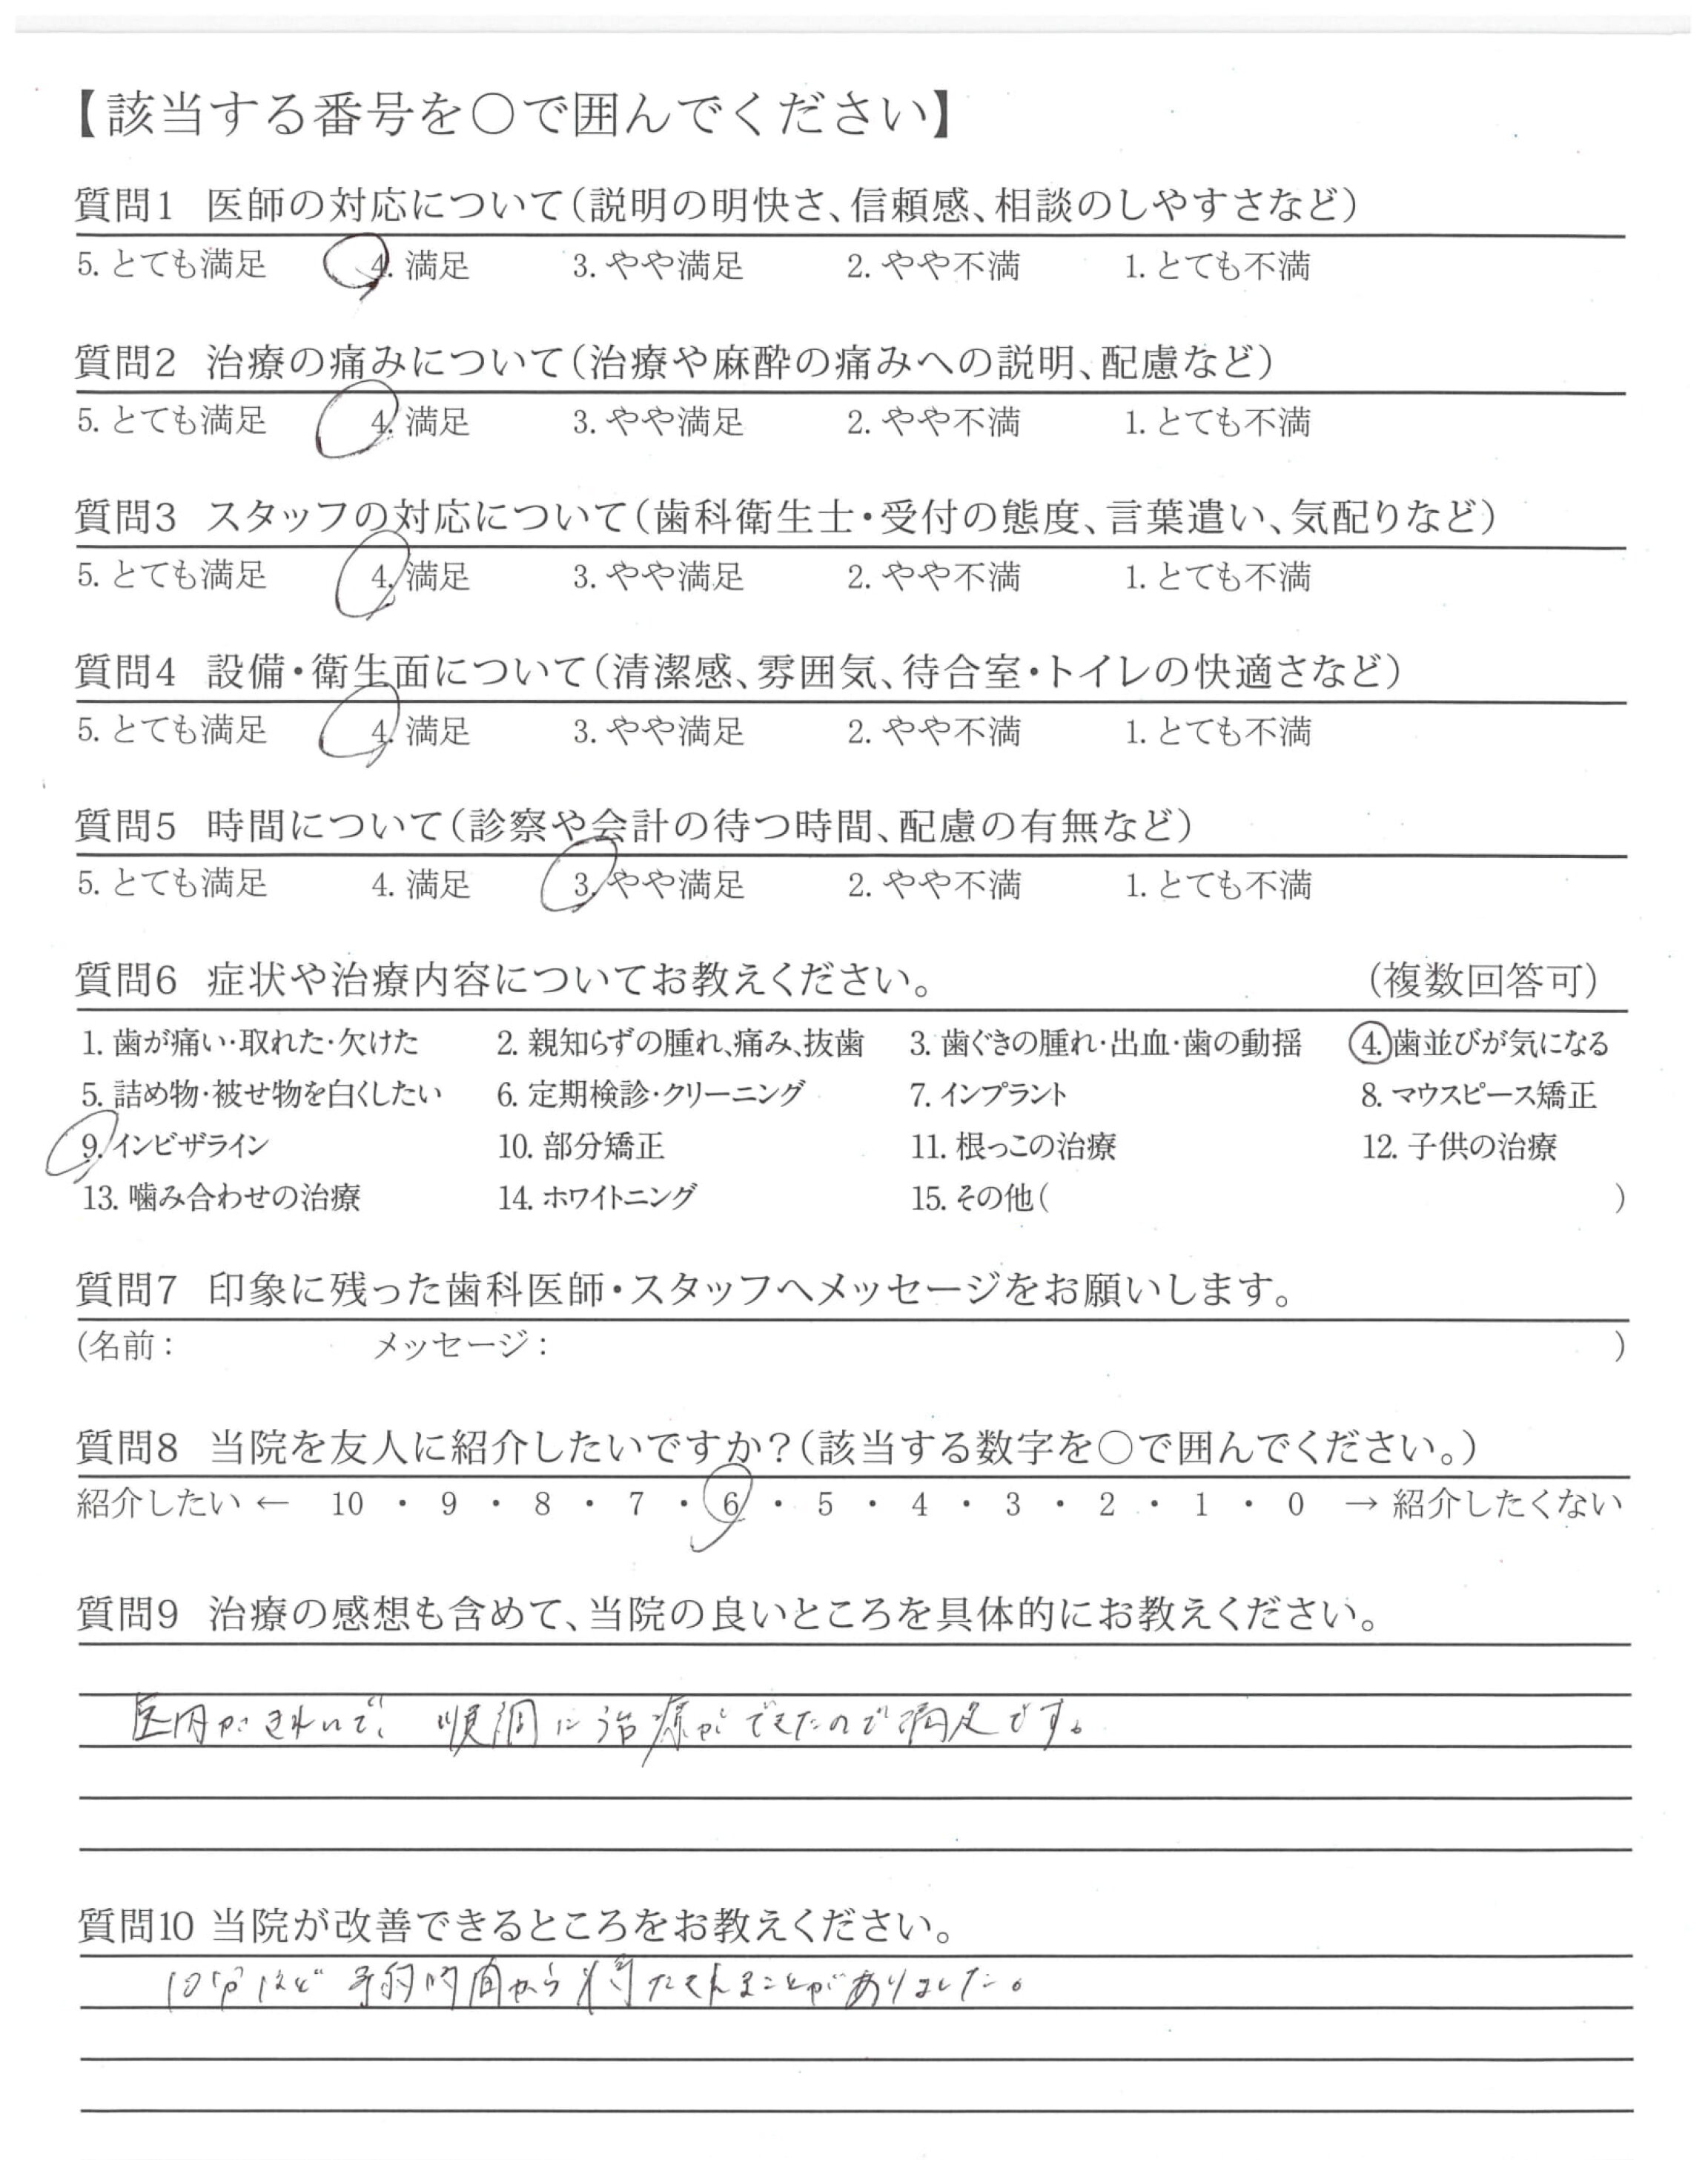 【該当する番号を○で囲んでください】
質問1 医師の対応について(説明の明快さ、信頼感、相談のしやすさなど)
5. とても満足 4. 満足 3. やや満足 2. やや不満 1. とても不満
質問2 治療の痛みについて(治療や麻酔の痛みへの説明、配慮など)
5. とても満足 4. 満足 3. やや満足 2. やや不満 1. とても不満
質問3 スタッフの対応について(歯科衛生士・受付の態度、言葉遣い、気配りなど)
5. とても満足 4. 満足 3. やや満足 2. やや不満 1. とても不満
質問4 設備・衛生面について(清潔感、雰囲気、待合室・トイレの快適さなど)
5. とても満足 4. 満足 3. やや満足 2. やや不満 1. とても不満
質問5 時間について(診察や会計の待つ時間、配慮の有無など)
5. とても満足 4. 満足 3. やや満足 2. やや不満 1. とても不満
質問6 症状や治療内容についてお教えください。 (複数回答可)
1. 歯が痛い・取れた・欠けた 2. 親知らずの腫れ、痛み、抜歯 3. 歯ぐきの腫れ・出血・歯の動揺 4. 歯並びが気になる
5. 詰め物・被せ物を白くしたい 6. 定期検診・クリーニング 7. インプラント 8. マウスピース矯正
9. インビザライン 10. 部分矯正 11. 根っこの治療 12. 子供の治療
13. 噛み合わせの治療 14. ホワイトニング 15. その他( )
質問7 印象に残った歯科医師・スタッフへメッセージをお願いします。
(名前: メッセージ: )
質問8 当院を友人に紹介したいですか?(該当する数字を○で囲んでください。)
紹介したい ← 10 ・ 9 ・ 8 ・ 7 ・ 6 ・ 5 ・ 4 ・ 3 ・ 2 ・ 1 ・ 0 → 紹介したくない
質問9 治療の感想も含めて、当院の良いところを具体的にお教えください。
医内がきれいで、順調に治療ができたので満足です。
質問10 当院が改善できるところをお教えください。
10分ほど予約時間から待たされることがありました。